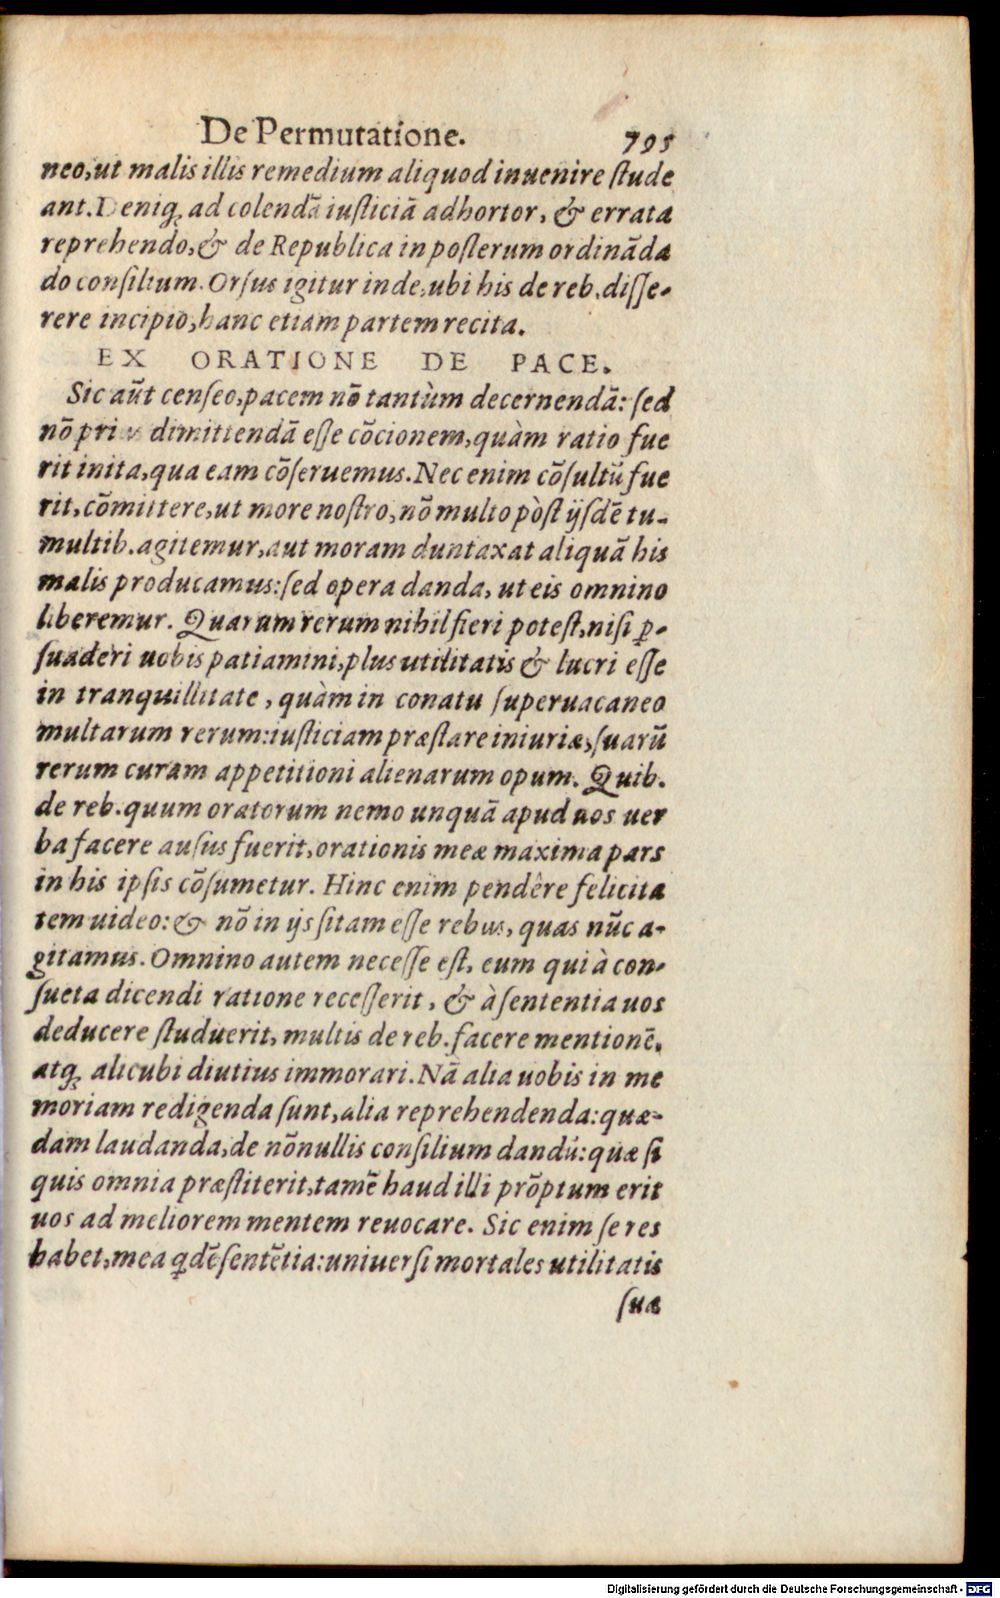 De Permutatione. 795
neo,ut malis illis remedium aliquod inuenire ſtude
ant. Deniqꝫ ad colendā iuſticiā adhortor, & errata
reprehendo,& de Republica in poſterum ordināda
do conſilium. Orſus igitur inde,ubi his de reb.diſſe-
rere incipio,hanc etiam partem recita.
EX ORATIONE DE PACE.
Sic aūt cenſeo,pacem nō tantùm decernendā: ſed
nō prius dimittendā eſſe cōcionem,quàm ratio fue
rit inita,qua eam cōſeruemus. Nec enim cōſultū fue
rit,cōmittere,ut more noſtro,nō multo pòſt ijſdē tu-
multib.agitemur,aut moram duntaxat aliquā his
malis producamus:ſed opera danda, ut eis omnino
liberemur. Quarum rerum nihil fieri poteſt,niſi ꝑ-
ſuaderi uobis patiamini,plus utilitatis & lucri eſſe
in tranquillitate, quàm in conatu ſuperuacaneo
multarum rerum:iuſticiam præſtare iniuriæ,ſuarū
rerum curam appetitioni alienarum opum. Quib.
de reb.quum oratorum nemo unquā apud uos uer
ba facere auſus fuerit,orationis meæ maxima pars
in his ipſis cōſumetur. Hinc enim pendêre felicita
tem uideo:& nō in ijs ſitam eſſe rebus, quas nūc a-
gitamus. Omnino autem neceſſe eſt, eum qui à con-
ſueta dicendi ratione receſſerit, & à ſententia uos
deducere ſtuduerit, multis de reb.facere mentionē,
atqꝫ alicubi diutius immorari. Nā alia uobis in me
moriam redigenda ſunt,alia reprehendenda:quæ-
dam laudanda,de nōnullis conſilium dandū:quæ ſi
quis omnia præſtiterit,tamē haud illi prōptum erit
uos ad meliorem mentem reuocare. Sic enim ſe res
habet,mea qdē ſentētia:uniuerſi mortales utilitatis
ſuæ
Digitalisierung gefördert durch die Deutsche Forschungsgemeinschaft - DFG